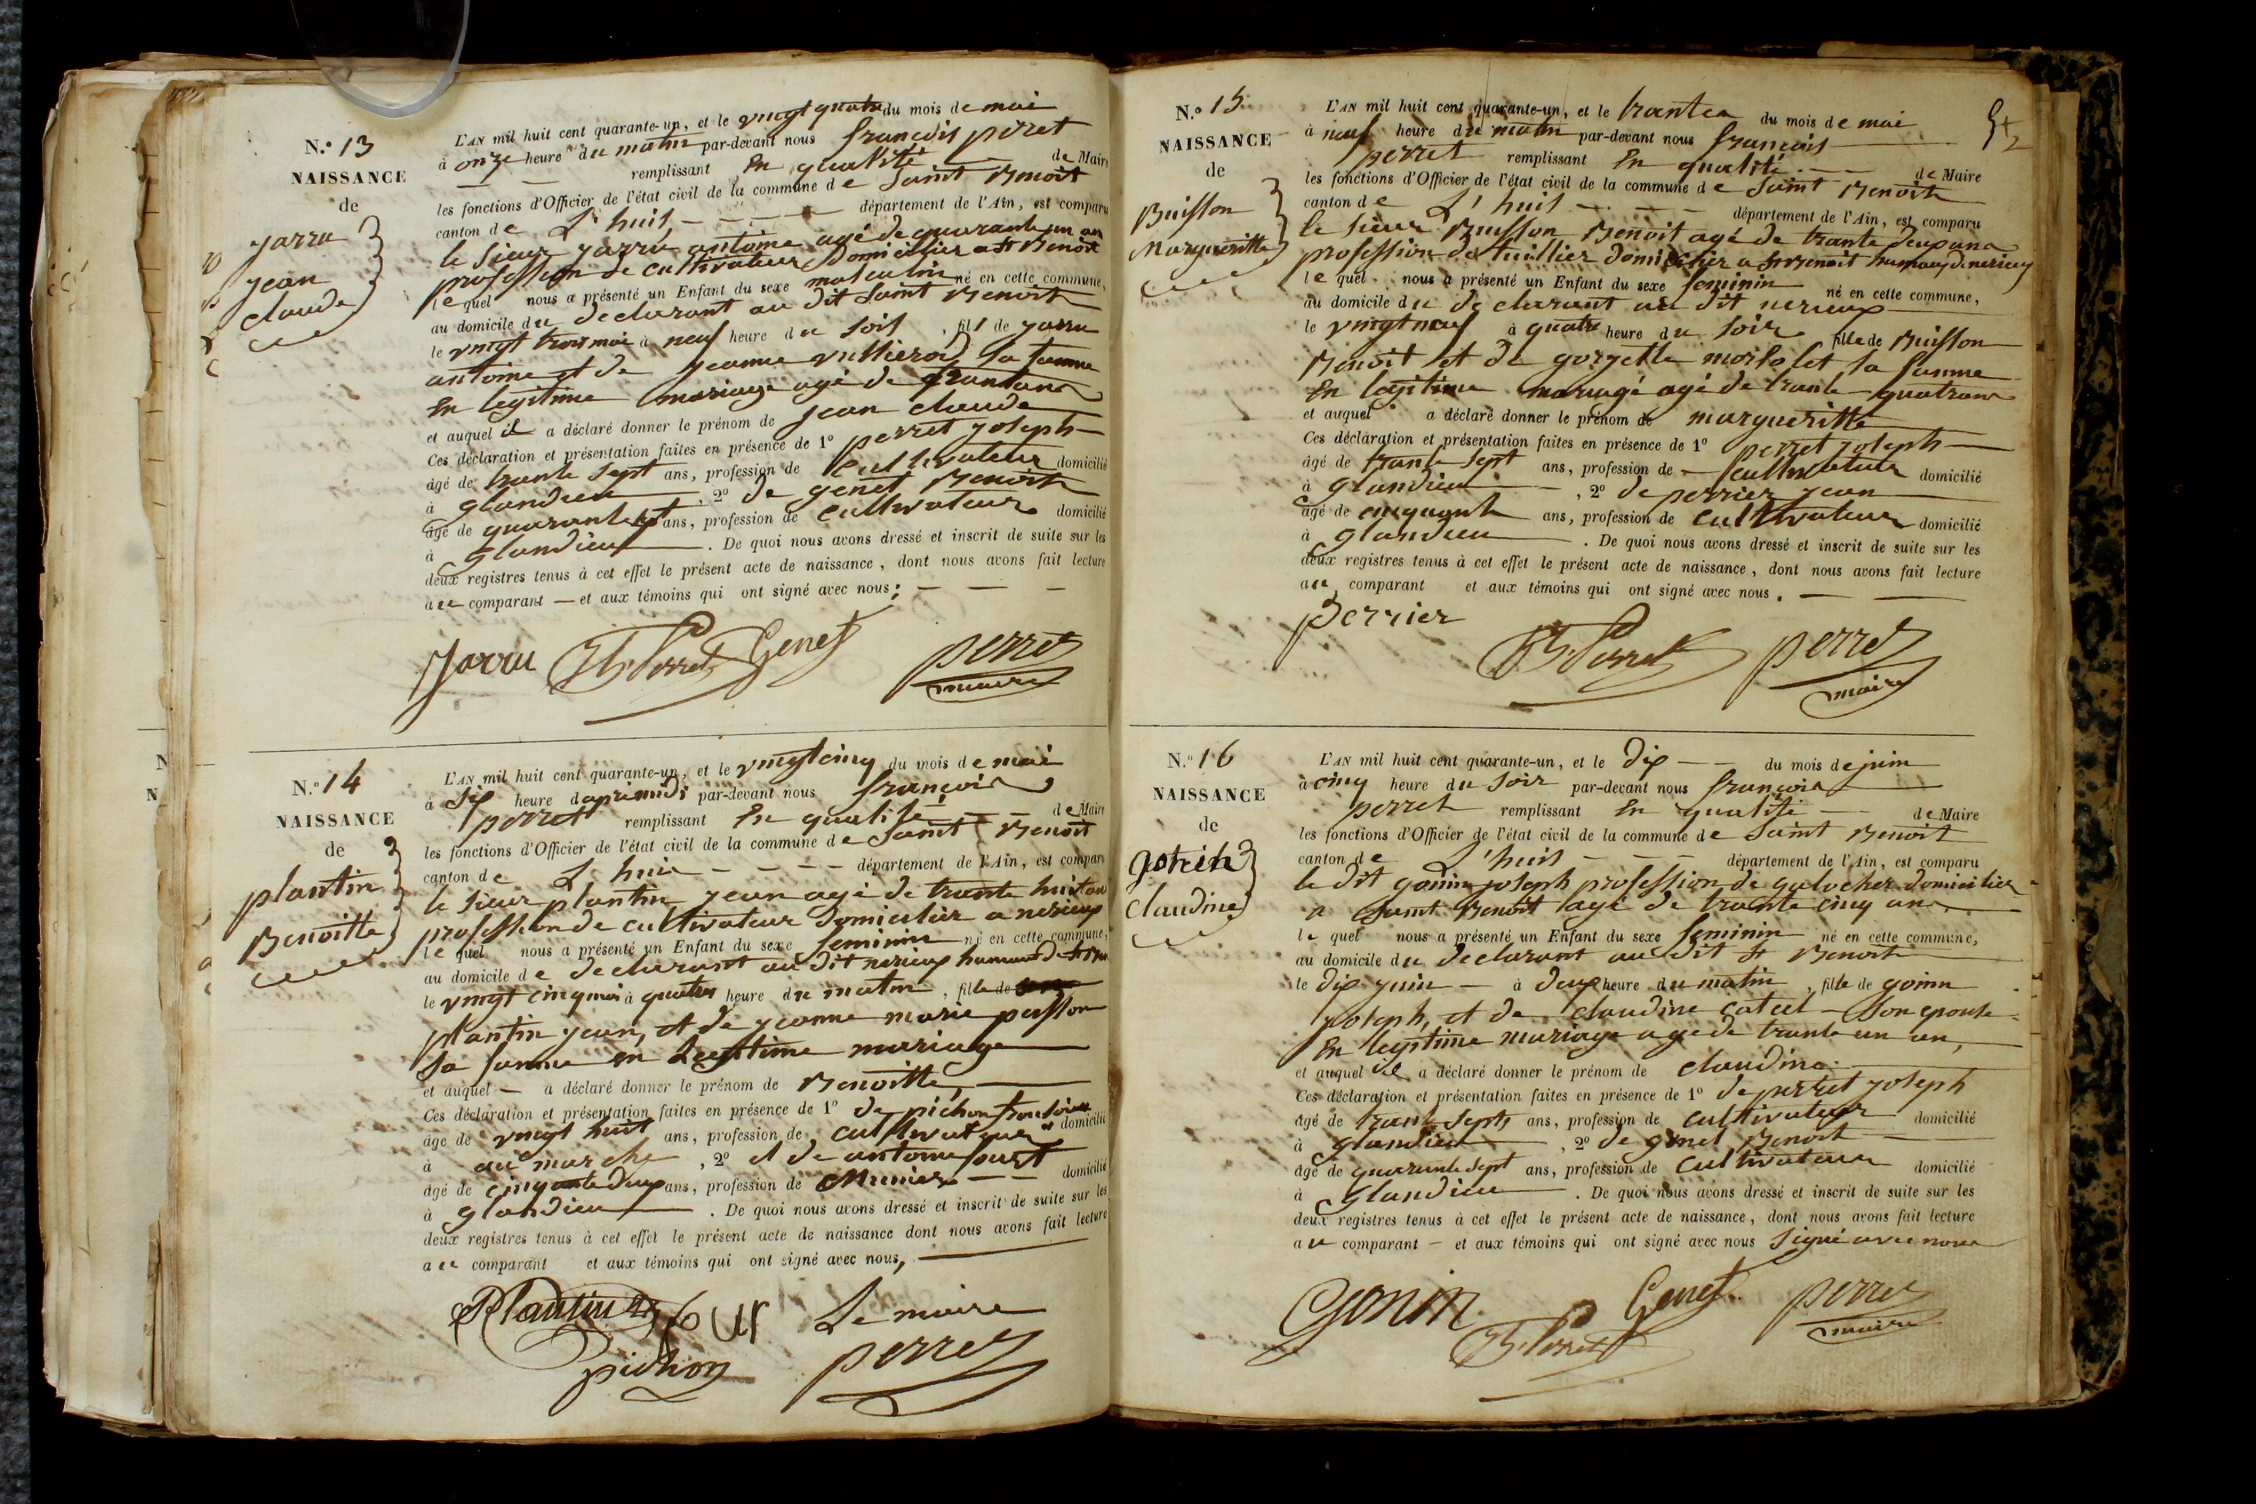 N.º 13
NAISSANCE
de
Jarru
Jean
claude
L'AN mil huit cent quarante-un, et le vingt quatre du mois de mai
à onze heure du matin par-devant nous françois perret
remplissant En qualité de Maire
les fonctions d'Officier de l'état civil de la commune de Saint Benoit
canton de L'huis département de l'Ain, est comparu
le sieur Jarru antoine agé de quarante un an
profession de cultivateur Domicilier a St Benoit
lequel nous a présenté un Enfant du sexe masculin né en cette commune,
au domicile du declarant au dit Saint Benoit
le vingt trois mai à neuf heure du soir, fils de Jarru
antoine et de Jeanne sa famme
En legitime mariage agé de
et auquel il a déclaré donner le prénom de Jean claude
Ces déclaration et présentation faites en présence de 1º perret joseph
âgé de trante sept ans, profession de cultivateur domicilié
à glandieu, 2º de genet Benoit
âgé de quarante sept ans, profession de cultivateur domicilié
à glandieu. De quoi nous avons dressé et inscrit de suite sur les
deux registres tenus à cet effet le présent acte de naissance, dont nous avons fait lecture
au comparant et aux témoins qui ont signé avec nous;
Jarru Perret Genet perret
maire
N.º 14
NAISSANCE
de
plantin
Benoitte
L'AN mil huit cent quarante-un, et le vingt cinq du mois de mai
à six heure d apremidi par-devant nous françois
perret remplissant En qualité de Maire
les fonctions d'Officier de l'état civil de la commune de Saint Benoit
canton de L'huis département de l'Ain, est comparu
le sieur plantin jean agé de trante huit an
profession de cultivateur domicilier a nerieux
lequel nous a présenté un Enfant du sexe feminin né en cette commune,
au domicile de declarant au dit nerieux hamaux de St
le vingt cinq mai à quatre heure du matin, fille de
plantin jean, et de jeanne marie
sa famme en Legitime mariage
et auquel a déclaré donner le prénom de Benoitte,
Ces déclaration et présentation faites en présence de 1º de pichon
âgé de vingt huit ans, profession de cultivateur domicilié
à au marche, 2º et de antoine
âgé de cinquante deux ans, profession de Munier domicilié
à glandieu. De quoi nous avons dressé et inscrit de suite sur les
deux registres tenus à cet effet le présent acte de naissance dont nous avons fait lecture
au comparant et aux témoins qui ont signé avec nous,
Plantin Le maire
pichon perret
N.º 15
NAISSANCE
de
Buisson
Margueritte
L'AN mil huit cent quarante-un, et le trante du mois de mai
à neuf heure du matin par-devant nous françois
perret remplissant En qualité de Maire
les fonctions d'Officier de l'état civil de la commune de Saint Benoit
canton de L'huis département de l'Ain, est comparu
le sieur Buisson Benoit agé de trante deux ans
profession de tuillier domicilier a St Benoit hamaux de nerieux
lequel nous a présenté un Enfant du sexe feminin né en cette commune,
au domicile du declarant au dit nerieux
le vingt neuf à quatre heure du soir fille de Buisson
Benoit et de gorgette sa famme
En legitime mariage agé de trante quatr ans
et auquel a déclaré donner le prénom de margueritte
Ces déclaration et présentation faites en présence de 1º perret joseph
âgé de trante sept ans, profession de cultivateur domicilié
à glandieu, 2º de perrier jean
âgé de cinquante ans, profession de cultivateur domicilié
à glandieu. De quoi nous avons dressé et inscrit de suite sur les
deux registres tenus à cet effet le présent acte de naissance, dont nous avons fait lecture
au comparant et aux témoins qui ont signé avec nous.
Perrier Perret perret
maire
N.º 16
NAISSANCE
de
Claudine
L'AN mil huit cent quarante-un, et le dix du mois de juin
à cinq heure du soir par-devant nous françois
perret remplissant En qualité de Maire
les fonctions d'Officier de l'état civil de la commune de Saint Benoit
canton de L'huis département de l'Ain, est comparu
le dit gonin joseph profession de galocher domicilier
a Saint Benoit agé de trante cinq ans
lequel nous a présenté un Enfant du sexe feminin né en cette commune,
au domicile du declarant au dit St Benoit
le dix juin à deux heure du matin, fille de gonin
joseph, et de claudine catcel son epouse
En legitime mariage agé de trante un an,
et auquel il a déclaré donner le prénom de claudine
Ces déclaration et présentation faites en présence de 1º de perret joseph
âgé de trante sept ans, profession de cultivateur domicilié
à glandieu, 2º de genet Benoit
âgé de quarante sept ans, profession de cultivateur domicilié
à glandieu. De quoi nous avons dressé et inscrit de suite sur les
deux registres tenus à cet effet le présent acte de naissance, dont nous avons fait lecture
au comparant et aux témoins qui ont signé avec nous signé avec nous
Gonin Perret Genet perret
maire